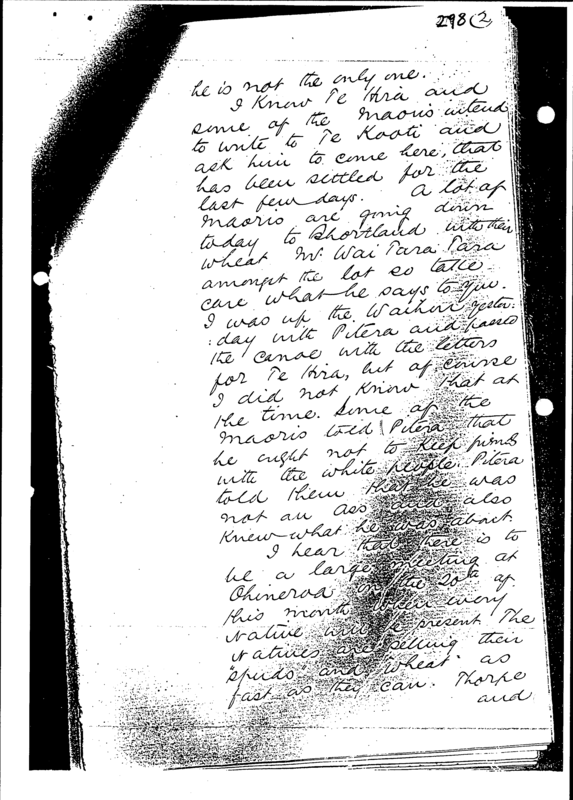 298 (2)
he is not the only one.
I Know Te Hira and
some of the Maoris intend
to write to Te Kooti and
ask him to come here, that
has been settled for the
last few days. A lot of
Maoris are going down
today to Shortland with their
wheat Mr. Wai Tara Tara
amongst the lot so take
care what he says to you.
I was up the Waihou yester
:day with Pitera and passed
the canoe with the letters
for Te Hira, but of course
I did not Know that at
the time. Some of the
Maoris told Pitera that
he ought not to Keep friends
with the white people. Pitera
told them that he was
not an Ass and also
Knew what he was about.
I hear that there is to
be a large meeting at
Ohineroa on the 20th of
this month when every
Native will be present. The
Natives are selling their
spuds and wheat as
fast as they can. Thorpe
and